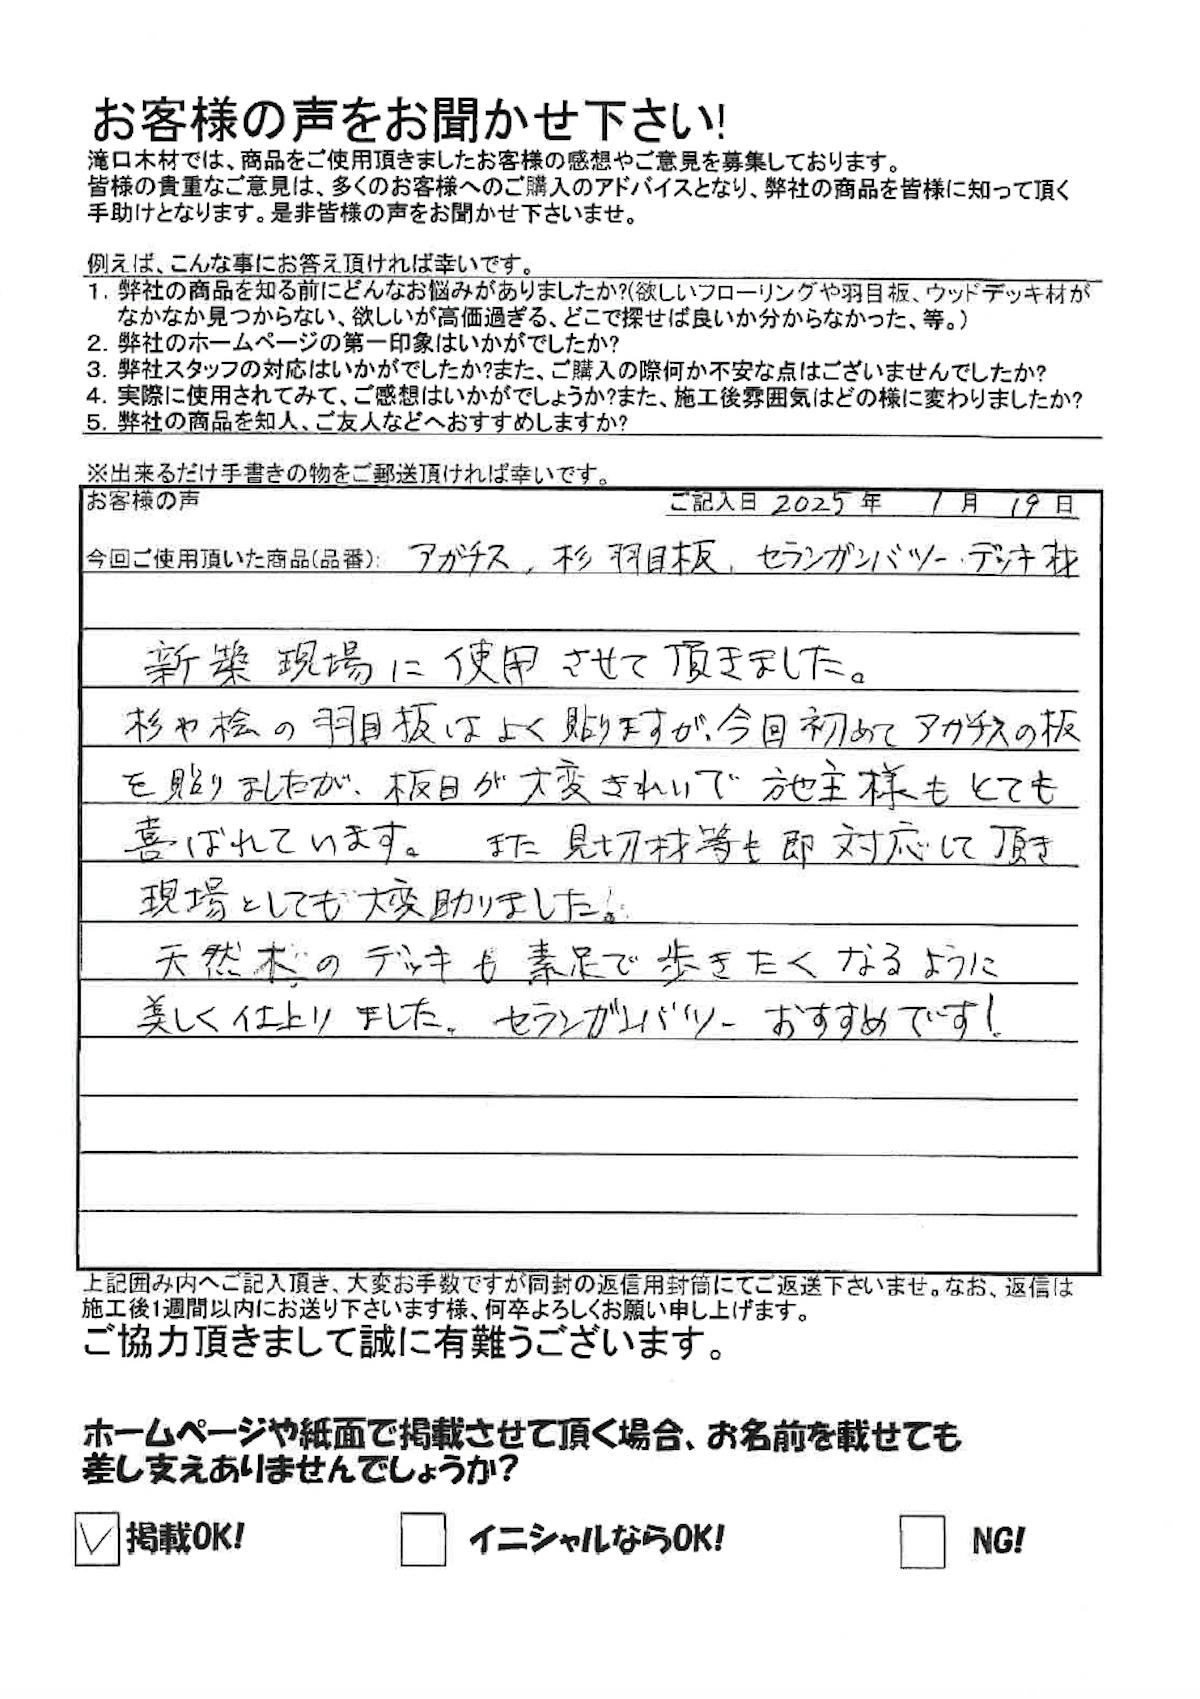 お客様の声をお聞かせ下さい!
滝口木材では、商品をご使用頂きましたお客様の感想やご意見を募集しております。
皆様の貴重なご意見は、多くのお客様へのご購入のアドバイスとなり、弊社の商品を皆様に知って頂く
手助けとなります。是非皆様の声をお聞かせ下さいませ。
例えば、こんな事にお答え頂ければ幸いです。
1. 弊社の商品を知る前にどんなお悩みがありましたか?(欲しいフローリングや羽目板、ウッドデッキ材が
なかなか見つからない、欲しいが高価過ぎる、どこで探せば良いか分からなかった、等。)
2. 弊社のホームページの第一印象はいかがでしたか?
3. 弊社スタッフの対応はいかがでしたか?また、ご購入の際何か不安な点はございませんでしたか?
4. 実際に使用されてみて、ご感想はいかがでしょうか?また、施工後雰囲気はどの様に変わりましたか?
5. 弊社の商品を知人、ご友人などへおすすめしますか?
※出来るだけ手書きの物をご郵送頂ければ幸いです。
お客様の声 ご記入日 2025 年 1 月 19 日
今回ご使用頂いた商品(品番): アガチス、杉羽目板、セランガンバツー・デッキ材
新築現場に使用させて頂きました。
杉や桧の羽目板はよく貼りますが、今回初めてアガチスの板
を貼りましたが、板目が大変きれいで施主様もとても
喜ばれています。 また見切材等も即対応して頂き
現場としても大変助りました。
天然木のデッキも素足で歩きたくなるように
美しく仕上りました。セランガンバツーおすすめです!
上記囲み内へご記入頂き、大変お手数ですが同封の返信用封筒にてご返送下さいませ。なお、返信は
施工後1週間以内にお送り下さいます様、何卒よろしくお願い申し上げます。
ご協力頂きまして誠に有難うございます。
ホームページや紙面で掲載させて頂く場合、お名前を載せても
差し支えありませんでしょうか?
掲載OK! イニシャルならOK! NG!